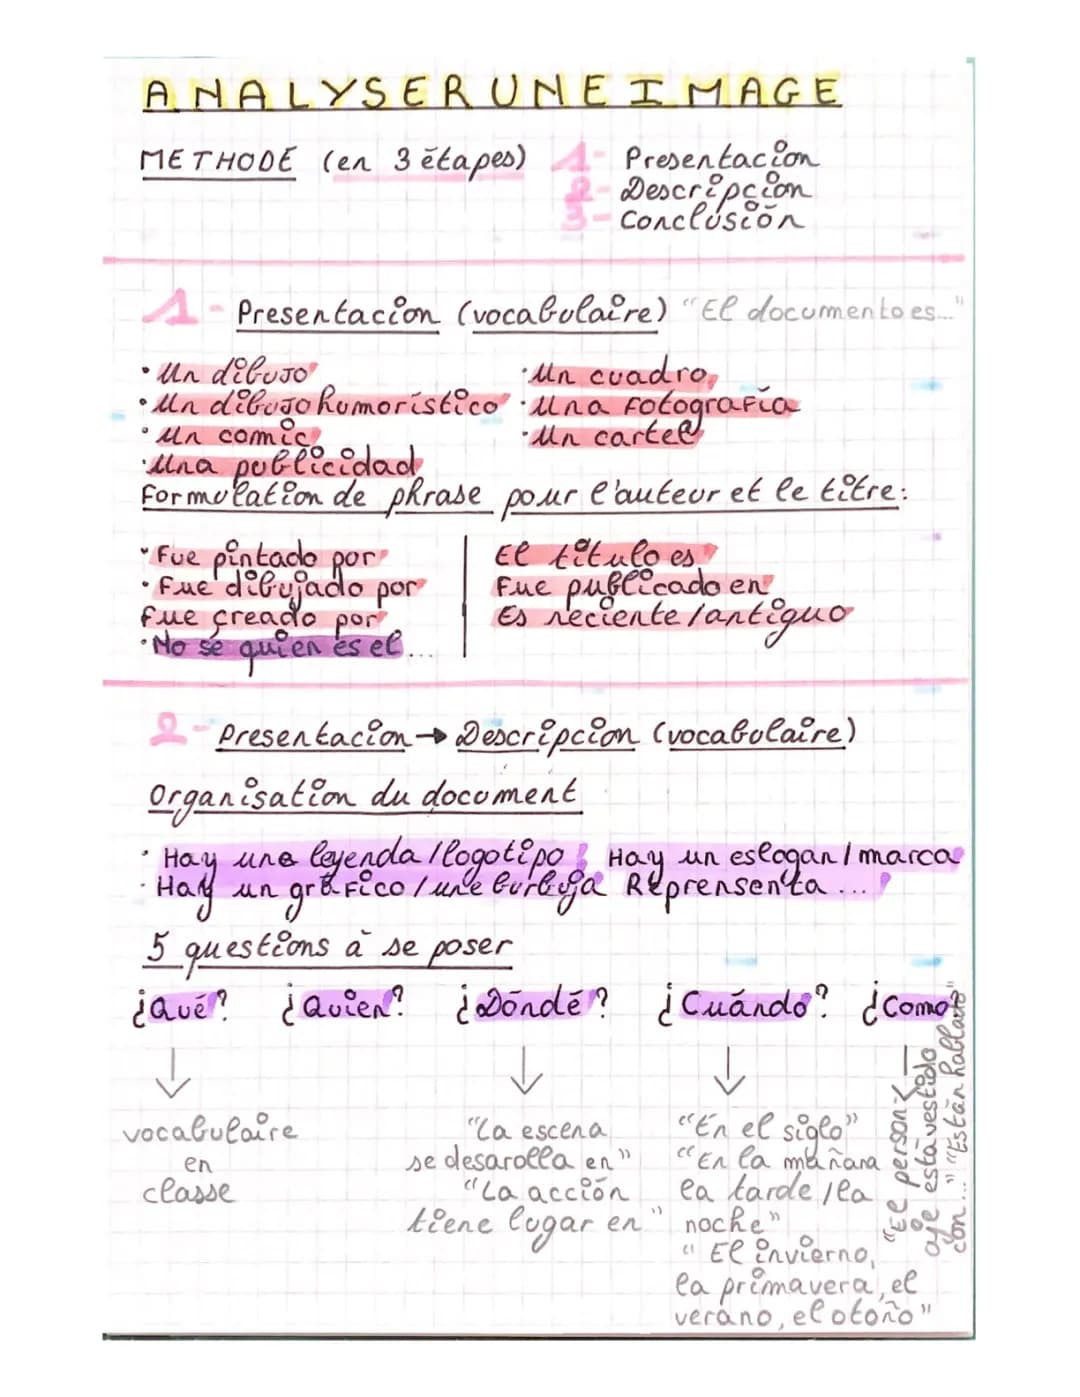 ANALYSER UNE IMAGE
METHODE (en 3 étapes) 1- Presentacion
2- Descripcion
3- Conclusión
1- Presentacion (vocabulaire) "El documento es..."
• Un dibujo
• Un dibujo humorístico
• Un comic
• Una publicidad
• Un cuadro
• Una fotografía
• Un cartel
Formulation de phrase pour l'auteur et le titre:
• Fue pintado por
• Fue dibujado por
Fue creado por
• No sé quien es el ...
El titulo es
Fue publicado en
Es reciente/antiguo
2- Presentacion → Descripcion (vocabulaire)
Organisation du document
• Hay une leyenda/logotipo; Hay un eslogan/marca
• Hay un gráfico/une burbuja Reprensenta ...
5 questions à se poser
¿Qué? ¿Quien? ¿Dónde? ¿Cuándo? ¿Como?
vocabulaire
en
classe
"La escena
se desarolla en"
"La acción
tiene lugar en"
"En el siglo"
"En la mañana
la tarde/la
noche"
"El invierno,
la primavera, el
verano, el otoño"
"El person-
aje está vestido
con..." "Están hablano"